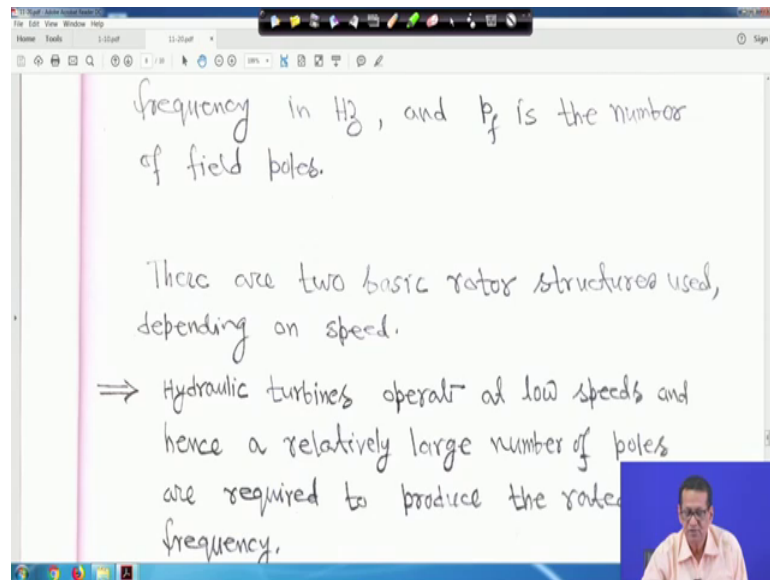 11-20.pdf - Adobe Acrobat Reader DC
File Edit View Window Help
Home Tools 1-10.pdf 11-20.pdf × Sign
frequency in Hz, and Pf is the number
of field poles.
There are two basic rotor structures used,
depending on speed.
⇒ Hydraulic turbines operat at low speeds and
hence a relatively large number of poles
are required to produce the rate
frequency.